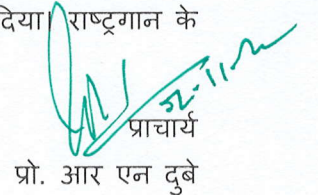 दिया। राष्ट्रगान के
प्राचार्य
प्रो. आर एन दुबे